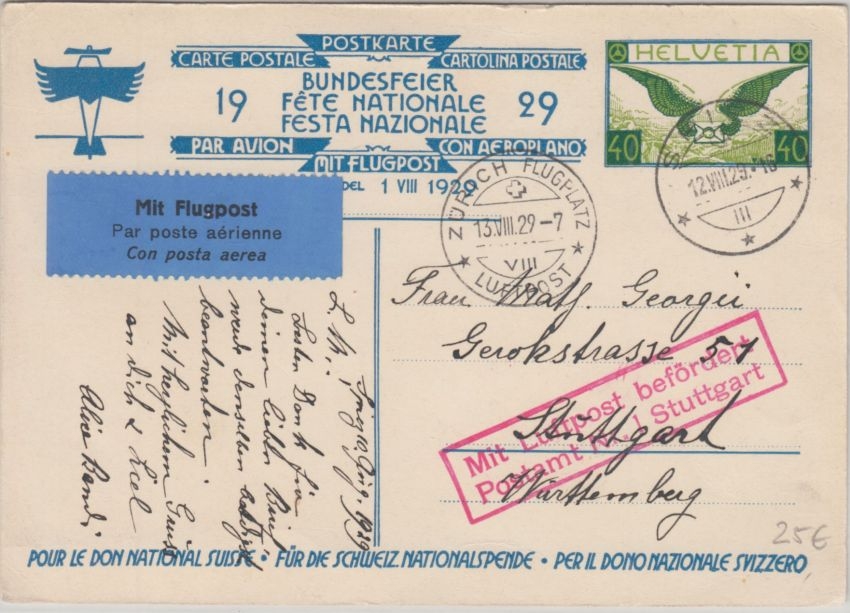 POSTKARTE
CARTE POSTALE CARTOLINA POSTALE
BUNDESFEIER
19 FÊTE NATIONALE 29
FESTA NAZIONALE
PAR AVION CON AEROPLANO
MIT FLUGPOST
DEL 1 VIII 1929
HELVETIA
40 40
12.VIII.29.
III
ZÜRICH FLUGPLATZ
13.VIII.29-7
VIII
LUFTPOST
Mit Flugpost
Par poste aérienne
Con posta aerea
Frau Math. Georgii
Gerokstrasse 51
Stuttgart
Württemberg
Mit Luftpost befördert
Postamt Nr. 1 Stuttgart
1929
L. M.,
Besten Dank für
Deinen lieben Brief
werde denselben
beantworten.
Mit herzlichem Gruss
an dich &
Alice
25€
POUR LE DON NATIONAL SUISSE • FÜR DIE SCHWEIZ. NATIONALSPENDE • PER IL DONO NAZIONALE SVIZZERO